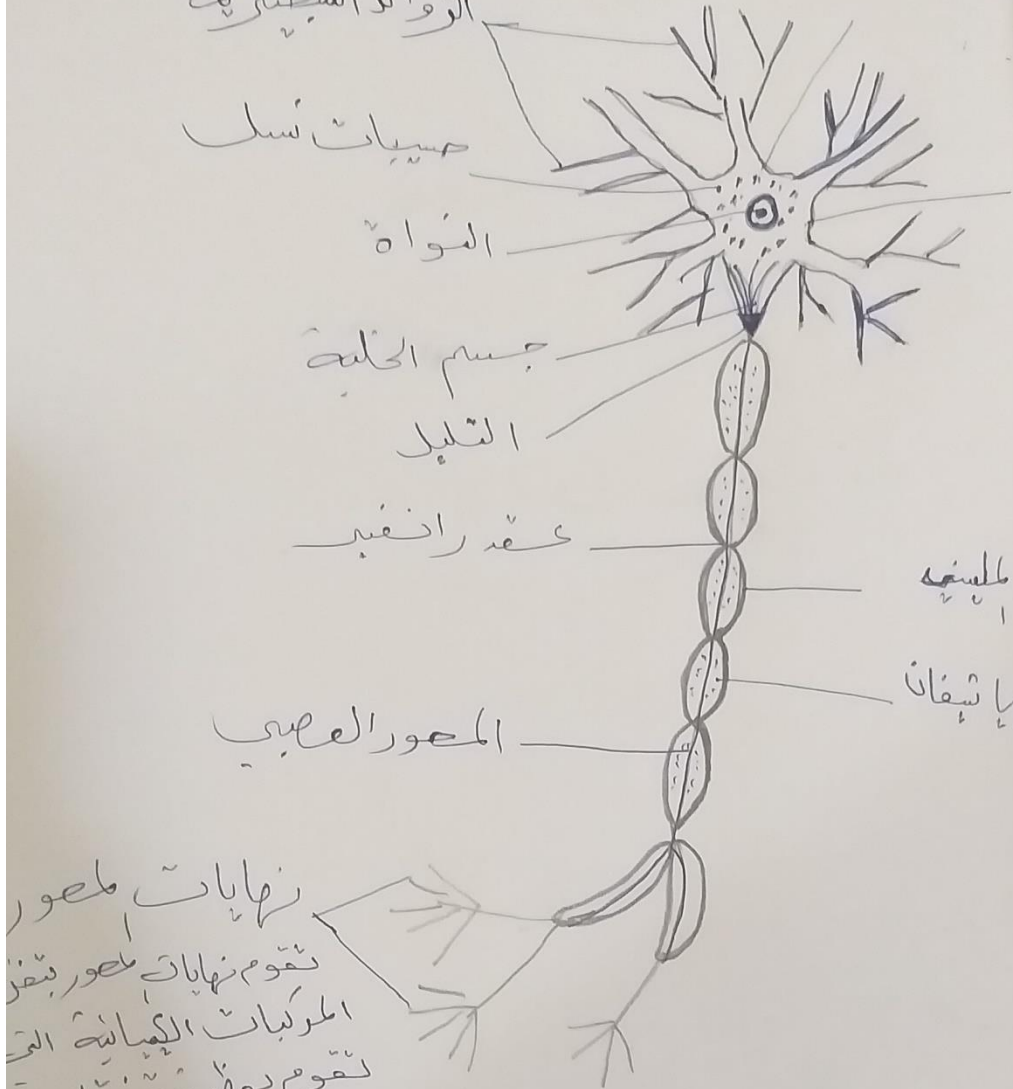 الزوائد الشجيرية
حبيبات نسل
النواة
جسم الخلية
التليل
عقد رانفير
المحور العصبي
نهايات المحور
تقوم نهايات المحور
المركبات الكيميائية التي
تقوم